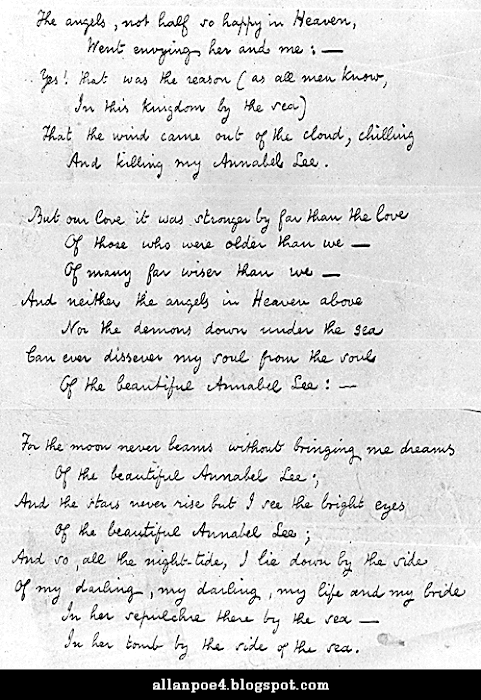 The angels, not half so happy in Heaven,
Went envying her and me: —
Yes! that was the reason (as all men know,
In this kingdom by the sea)
That the wind came out of the cloud, chilling
And killing my Annabel Lee.
But our love it was stronger by far than the love
Of those who were older than we —
Of many far wiser than we —
And neither the angels in Heaven above
Nor the demons down under the sea
Can ever dissever my soul from the soul
Of the beautiful Annabel Lee: —
For the moon never beams without bringing me dreams
Of the beautiful Annabel Lee;
And the stars never rise but I see the bright eyes
Of the beautiful Annabel Lee;
And so, all the night-tide, I lie down by the side
Of my darling, my darling, my life and my bride
In her sepulchre there by the sea —
In her tomb by the side of the sea.
allanpoe4.blogspot.com